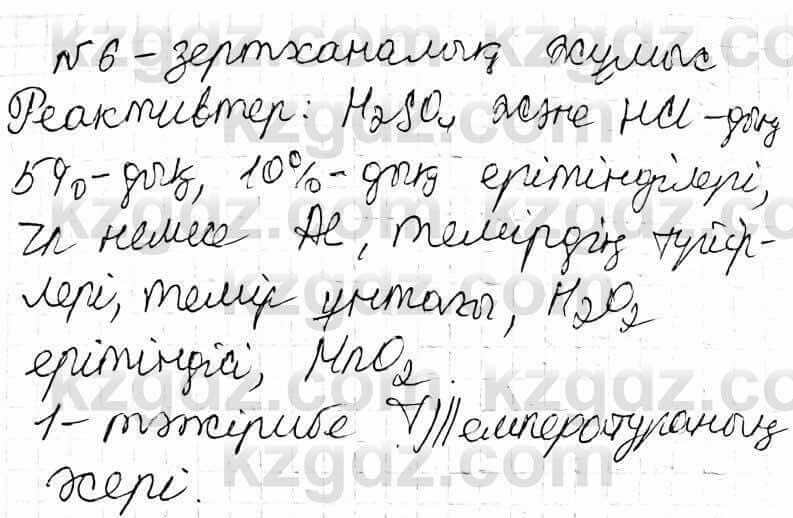 №6 - зертханалық жұмыс
Реактивтер: H₂SO₄ және HCl -дың
5%-дық, 10%-дық ерітінділері,
Zn немесе Al, темірдің түйір-
лері, темір ұнтағы, H₂O₂
ерітіндісі, MnO₂.
1- тәжірибе Температураның
әсері.
kzgdz.com